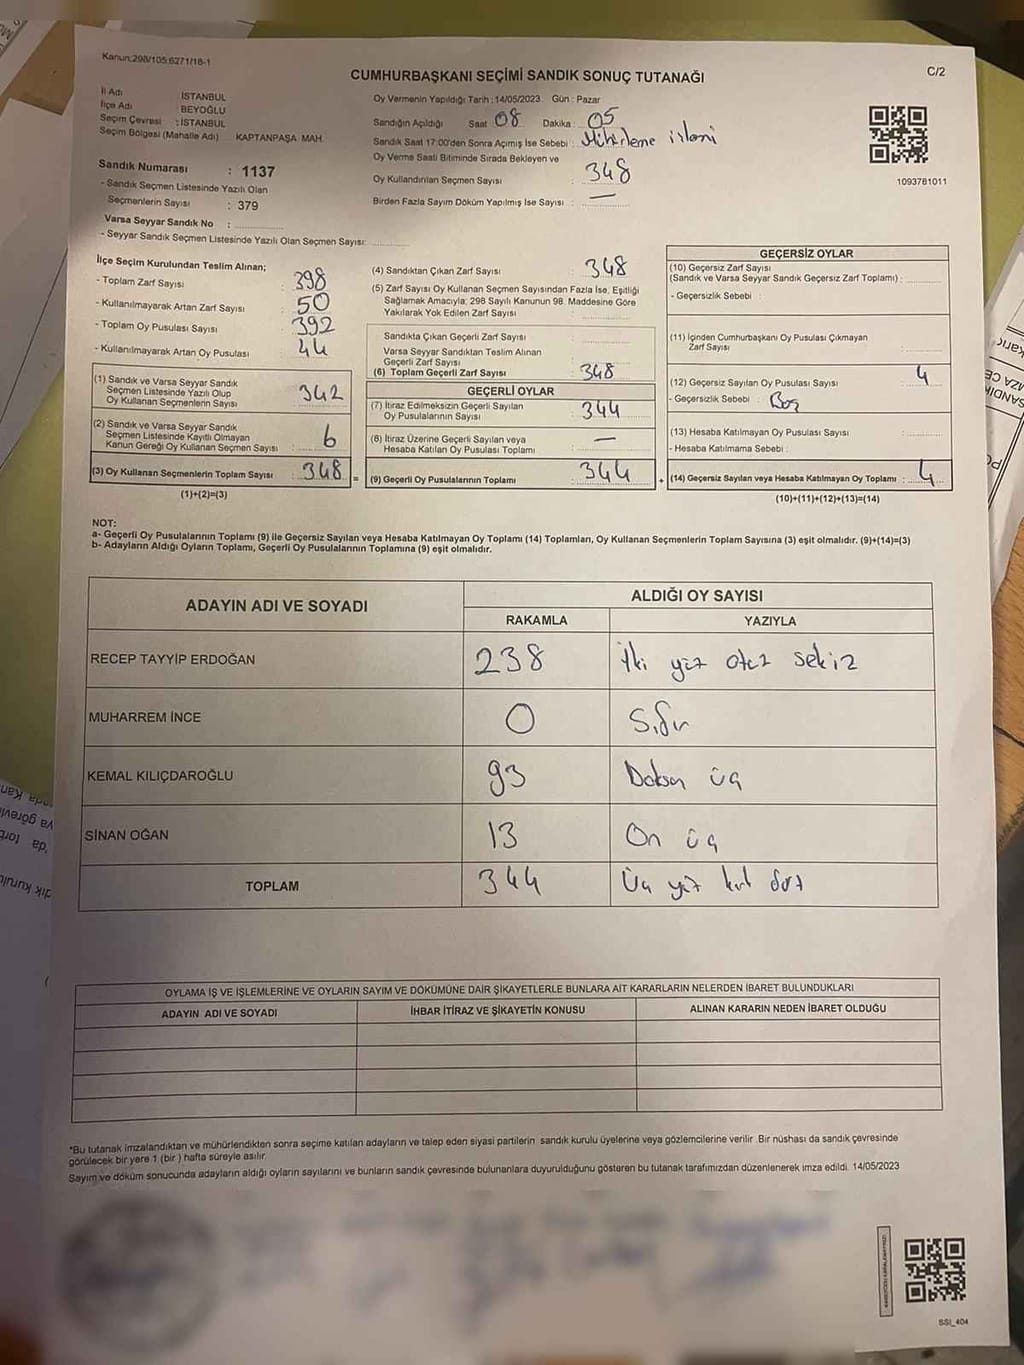 Kanun:298/105;6271/18-1
C/2
CUMHURBAŞKANI SEÇİMİ SANDIK SONUÇ TUTANAĞI
İl Adı İSTANBUL
İlçe Adı BEYOĞLU
Seçim Çevresi : İSTANBUL
Seçim Bölgesi (Mahalle Adı) KAPTANPAŞA MAH.
Sandık Numarası : 1137
- Sandık Seçmen Listesinde Yazılı Olan
Seçmenlerin Sayısı : 379
Varsa Seyyar Sandık No :
- Seyyar Sandık Seçmen Listesinde Yazılı Olan Seçmen Sayısı:
Oy Vermenin Yapıldığı Tarih : 14/05/2023 Gün : Pazar
Sandığın Açıldığı Saat 08 Dakika : 05
Sandık Saat 17:00'den Sonra Açımış İse Sebebi : Mühürleme işlemi
Oy Verme Saati Bitiminde Sırada Bekleyen ve
Oy Kullandırılan Seçmen Sayısı : 348
Birden Fazla Sayım Döküm Yapılmış İse Sayısı : —
1093781011
İlçe Seçim Kurulundan Teslim Alınan;
- Toplam Zarf Sayısı : 398
- Kullanılmayarak Artan Zarf Sayısı : 50
- Toplam Oy Pusulası Sayısı : 392
- Kullanılmayarak Artan Oy Pusulası : 44
(1) Sandık ve Varsa Seyyar Sandık
Seçmen Listesinde Yazılı Olup
Oy Kullanan Seçmenlerin Sayısı : 342
(2) Sandık ve Varsa Seyyar Sandık
Seçmen Listesinde Kayıtlı Olmayan
Kanun Gereği Oy Kullanan Seçmen Sayısı : 6
(3) Oy Kullanan Seçmenlerin Toplam Sayısı : 348 =
(1)+(2)=(3)
(4) Sandıktan Çıkan Zarf Sayısı : 348
(5) Zarf Sayısı Oy Kullanan Seçmen Sayısından Fazla İse, Eşitliği
Sağlamak Amacıyla; 298 Sayılı Kanunun 98. Maddesine Göre
Yakılarak Yok Edilen Zarf Sayısı :
Sandıkta Çıkan Geçerli Zarf Sayısı :
Varsa Seyyar Sandıktan Teslim Alınan
Geçerli Zarf Sayısı :
(6) Toplam Geçerli Zarf Sayısı : 348
GEÇERLİ OYLAR
(7) İtiraz Edilmeksizin Geçerli Sayılan
Oy Pusulalarının Sayısı : 344
(8) İtiraz Üzerine Geçerli Sayılan veya
Hesaba Katılan Oy Pusulası Toplamı : —
(9) Geçerli Oy Pusulalarının Toplamı : 344 +
GEÇERSİZ OYLAR
(10) Geçersiz Zarf Sayısı
(Sandık ve Varsa Seyyar Sandık Geçersiz Zarf Toplamı) :
- Geçersizlik Sebebi :
(11) İçinden Cumhurbaşkanı Oy Pusulası Çıkmayan
Zarf Sayısı :
(12) Geçersiz Sayılan Oy Pusulası Sayısı : 4
- Geçersizlik Sebebi : Boş
(13) Hesaba Katılmayan Oy Pusulası Sayısı :
- Hesaba Katılmama Sebebi :
(14) Geçersiz Sayılan veya Hesaba Katılmayan Oy Toplamı : 4
(10)+(11)+(12)+(13)=(14)
NOT:
a- Geçerli Oy Pusulalarının Toplamı (9) ile Geçersiz Sayılan veya Hesaba Katılmayan Oy Toplamı (14) Toplamları, Oy Kullanan Seçmenlerin Toplam Sayısına (3) eşit olmalıdır. (9)+(14)=(3)
b- Adayların Aldığı Oyların Toplamı, Geçerli Oy Pusulalarının Toplamına (9) eşit olmalıdır.
ADAYIN ADI VE SOYADI
ALDIĞI OY SAYISI
RAKAMLA YAZIYLA
RECEP TAYYİP ERDOĞAN 238 İki yüz otuz sekiz
MUHARREM İNCE 0 Sıfır
KEMAL KILIÇDAROĞLU 93 Doksan üç
SİNAN OĞAN 13 On üç
TOPLAM 344 Üç yüz kırk dört
OYLAMA İŞ VE İŞLEMLERİNE VE OYLARIN SAYIM VE DÖKÜMÜNE DAİR ŞİKAYETLERLE BUNLARA AİT KARARLARIN NELERDEN İBARET BULUNDUKLARI
ADAYIN ADI VE SOYADI İHBAR İTİRAZ VE ŞİKAYETİN KONUSU ALINAN KARARIN NEDEN İBARET OLDUĞU
*Bu tutanak imzalandıktan ve mühürlendikten sonra seçime katılan adayların ve talep eden siyasi partilerin sandık kurulu üyelerine veya gözlemcilerine verilir. Bir nüshası da sandık çevresinde
görülecek bir yere 1 (bir ) hafta süreyle asılır.
Sayım ve döküm sonucunda adayların aldığı oyların sayılarını ve bunların sandık çevresinde bulunanlara duyurulduğunu gösteren bu tutanak tarafımızdan düzenlenerek imza edildi. 14/05/2023
SSI_404